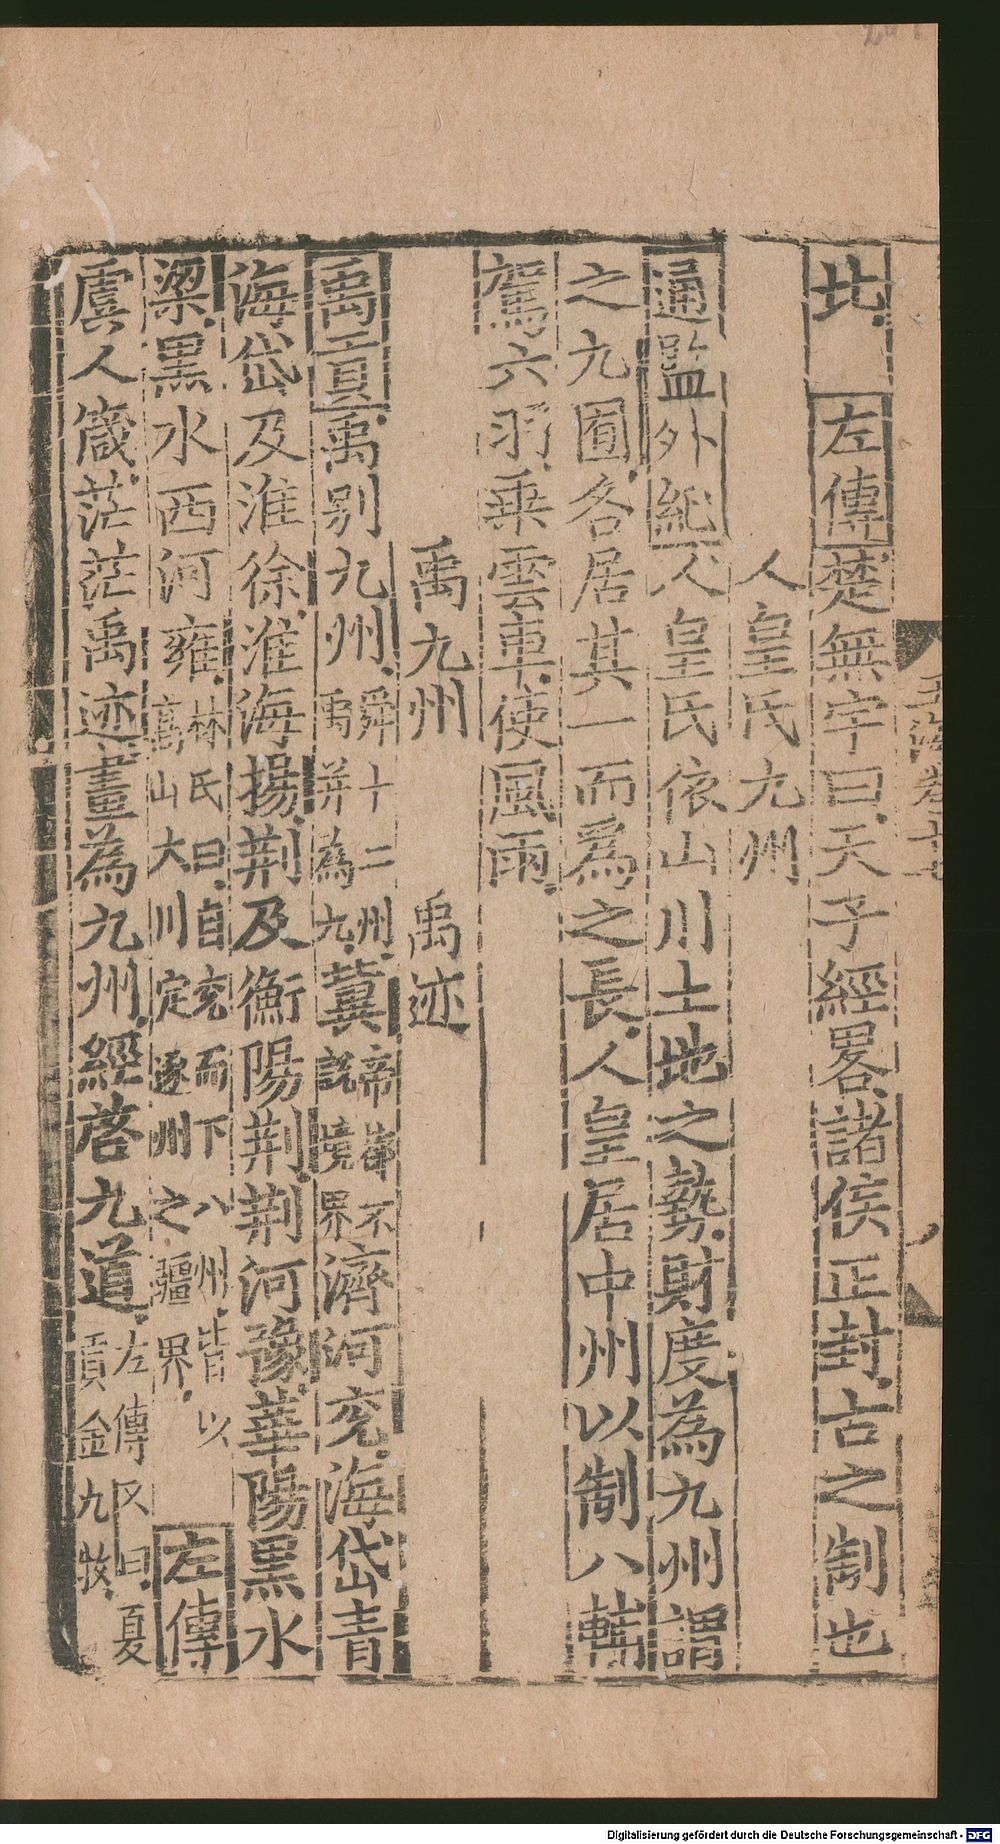 北　左傳楚無宇曰天子經畧諸侯正封古之制也
人皇氏九州
通監外紀人皇氏依山川土地之勢財度為九州謂
之九囿各居其一而為之長人皇居中州以制八輔
駕六羽乘雲車使風雨
禹九州　　禹迹
禹貢禹別九州舜十二州禹并為九冀帝都不說境界濟河兖海岱青
海岱及淮徐淮海揚荆及衡陽荆荆河豫華陽黑水
梁黑水西河雍林氏曰自兖而下八州皆以高山大川定逐州之疆界左傳
虞人箴茫茫禹迹畫為九州經啓九道左傳又曰夏貢金九牧
玉海卷十七
Digitalisierung gefördert durch die Deutsche Forschungsgemeinschaft - DFG